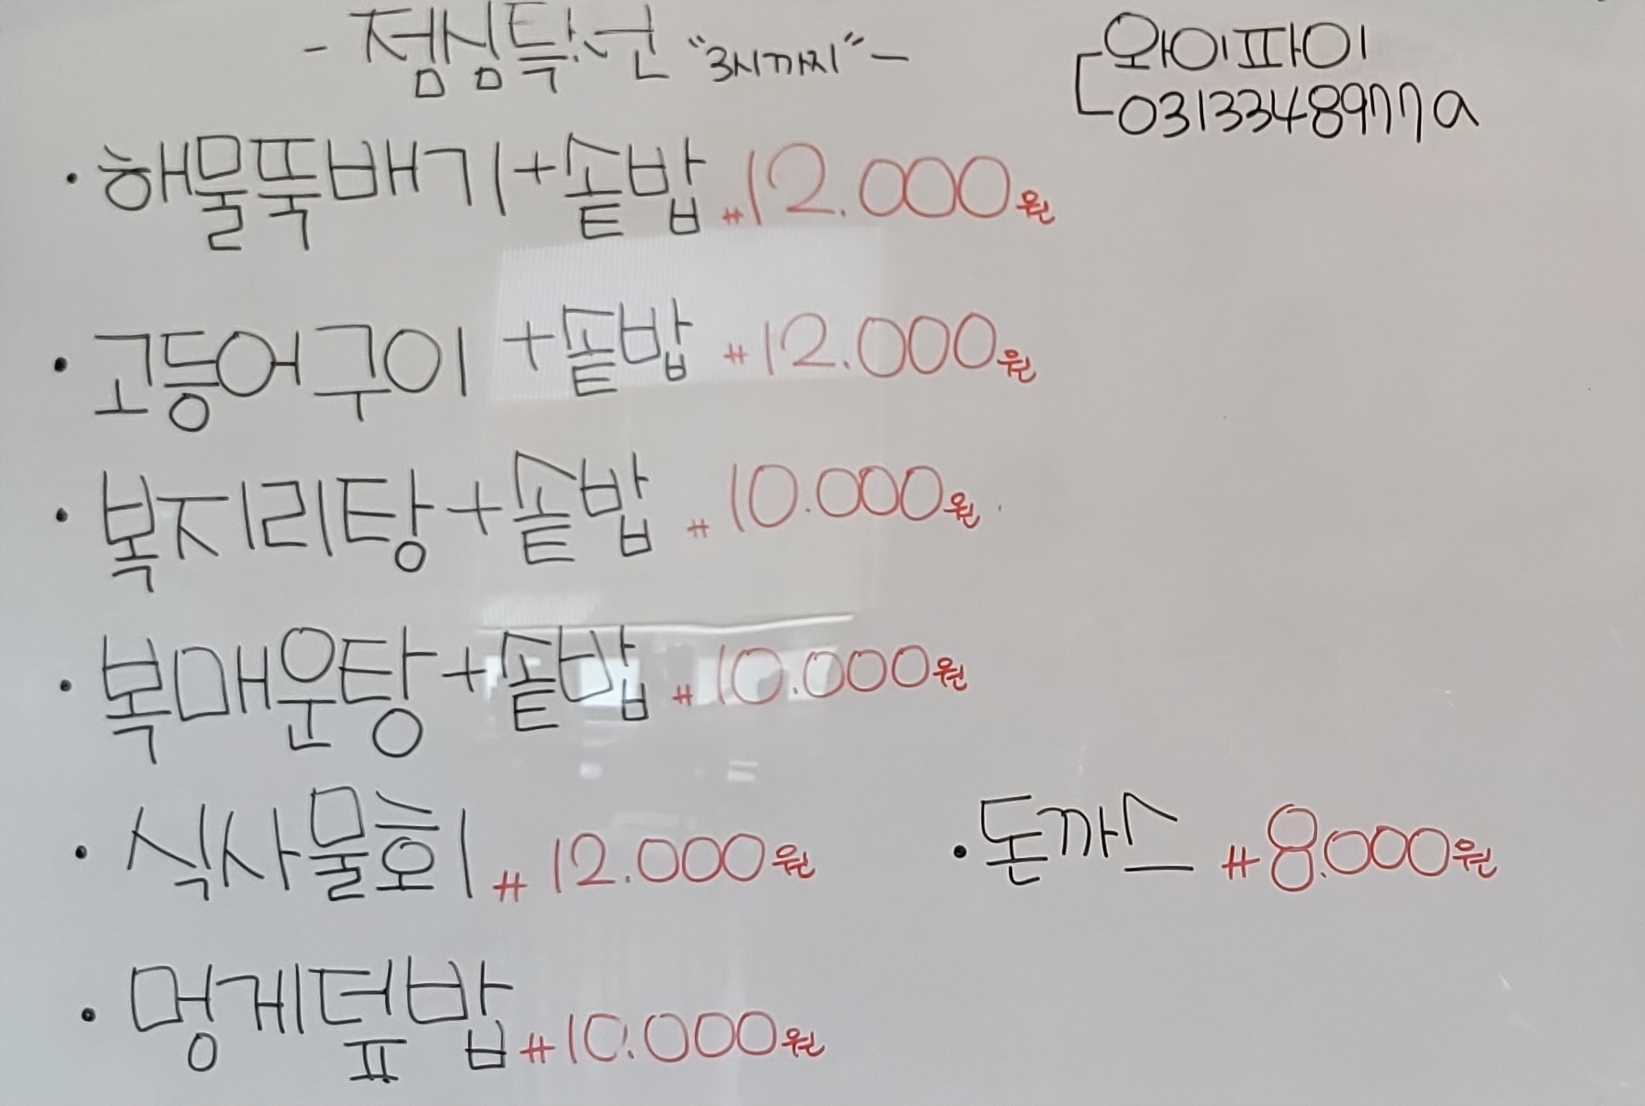 - 점심특선 "3시까지" -
와이파이
0313348977a
· 해물뚝배기+솥밥 #12.000원
· 고등어구이+솥밥 #12.000원
· 복지리탕+솥밥 #10.000원
· 복매운탕+솥밥 #10.000원
· 식사물회 #12.000원
· 돈까스 #8.000원
· 멍게덮밥 #10.000원